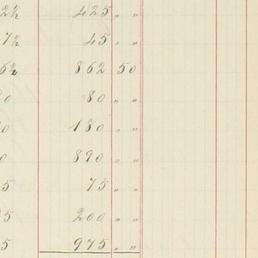 2½ 425 " "
7½ 45 " "
6½ 862 50
0 80 " "
0 180 " "
0 890 " "
5 75 " "
5 200 " "
5 975 " "